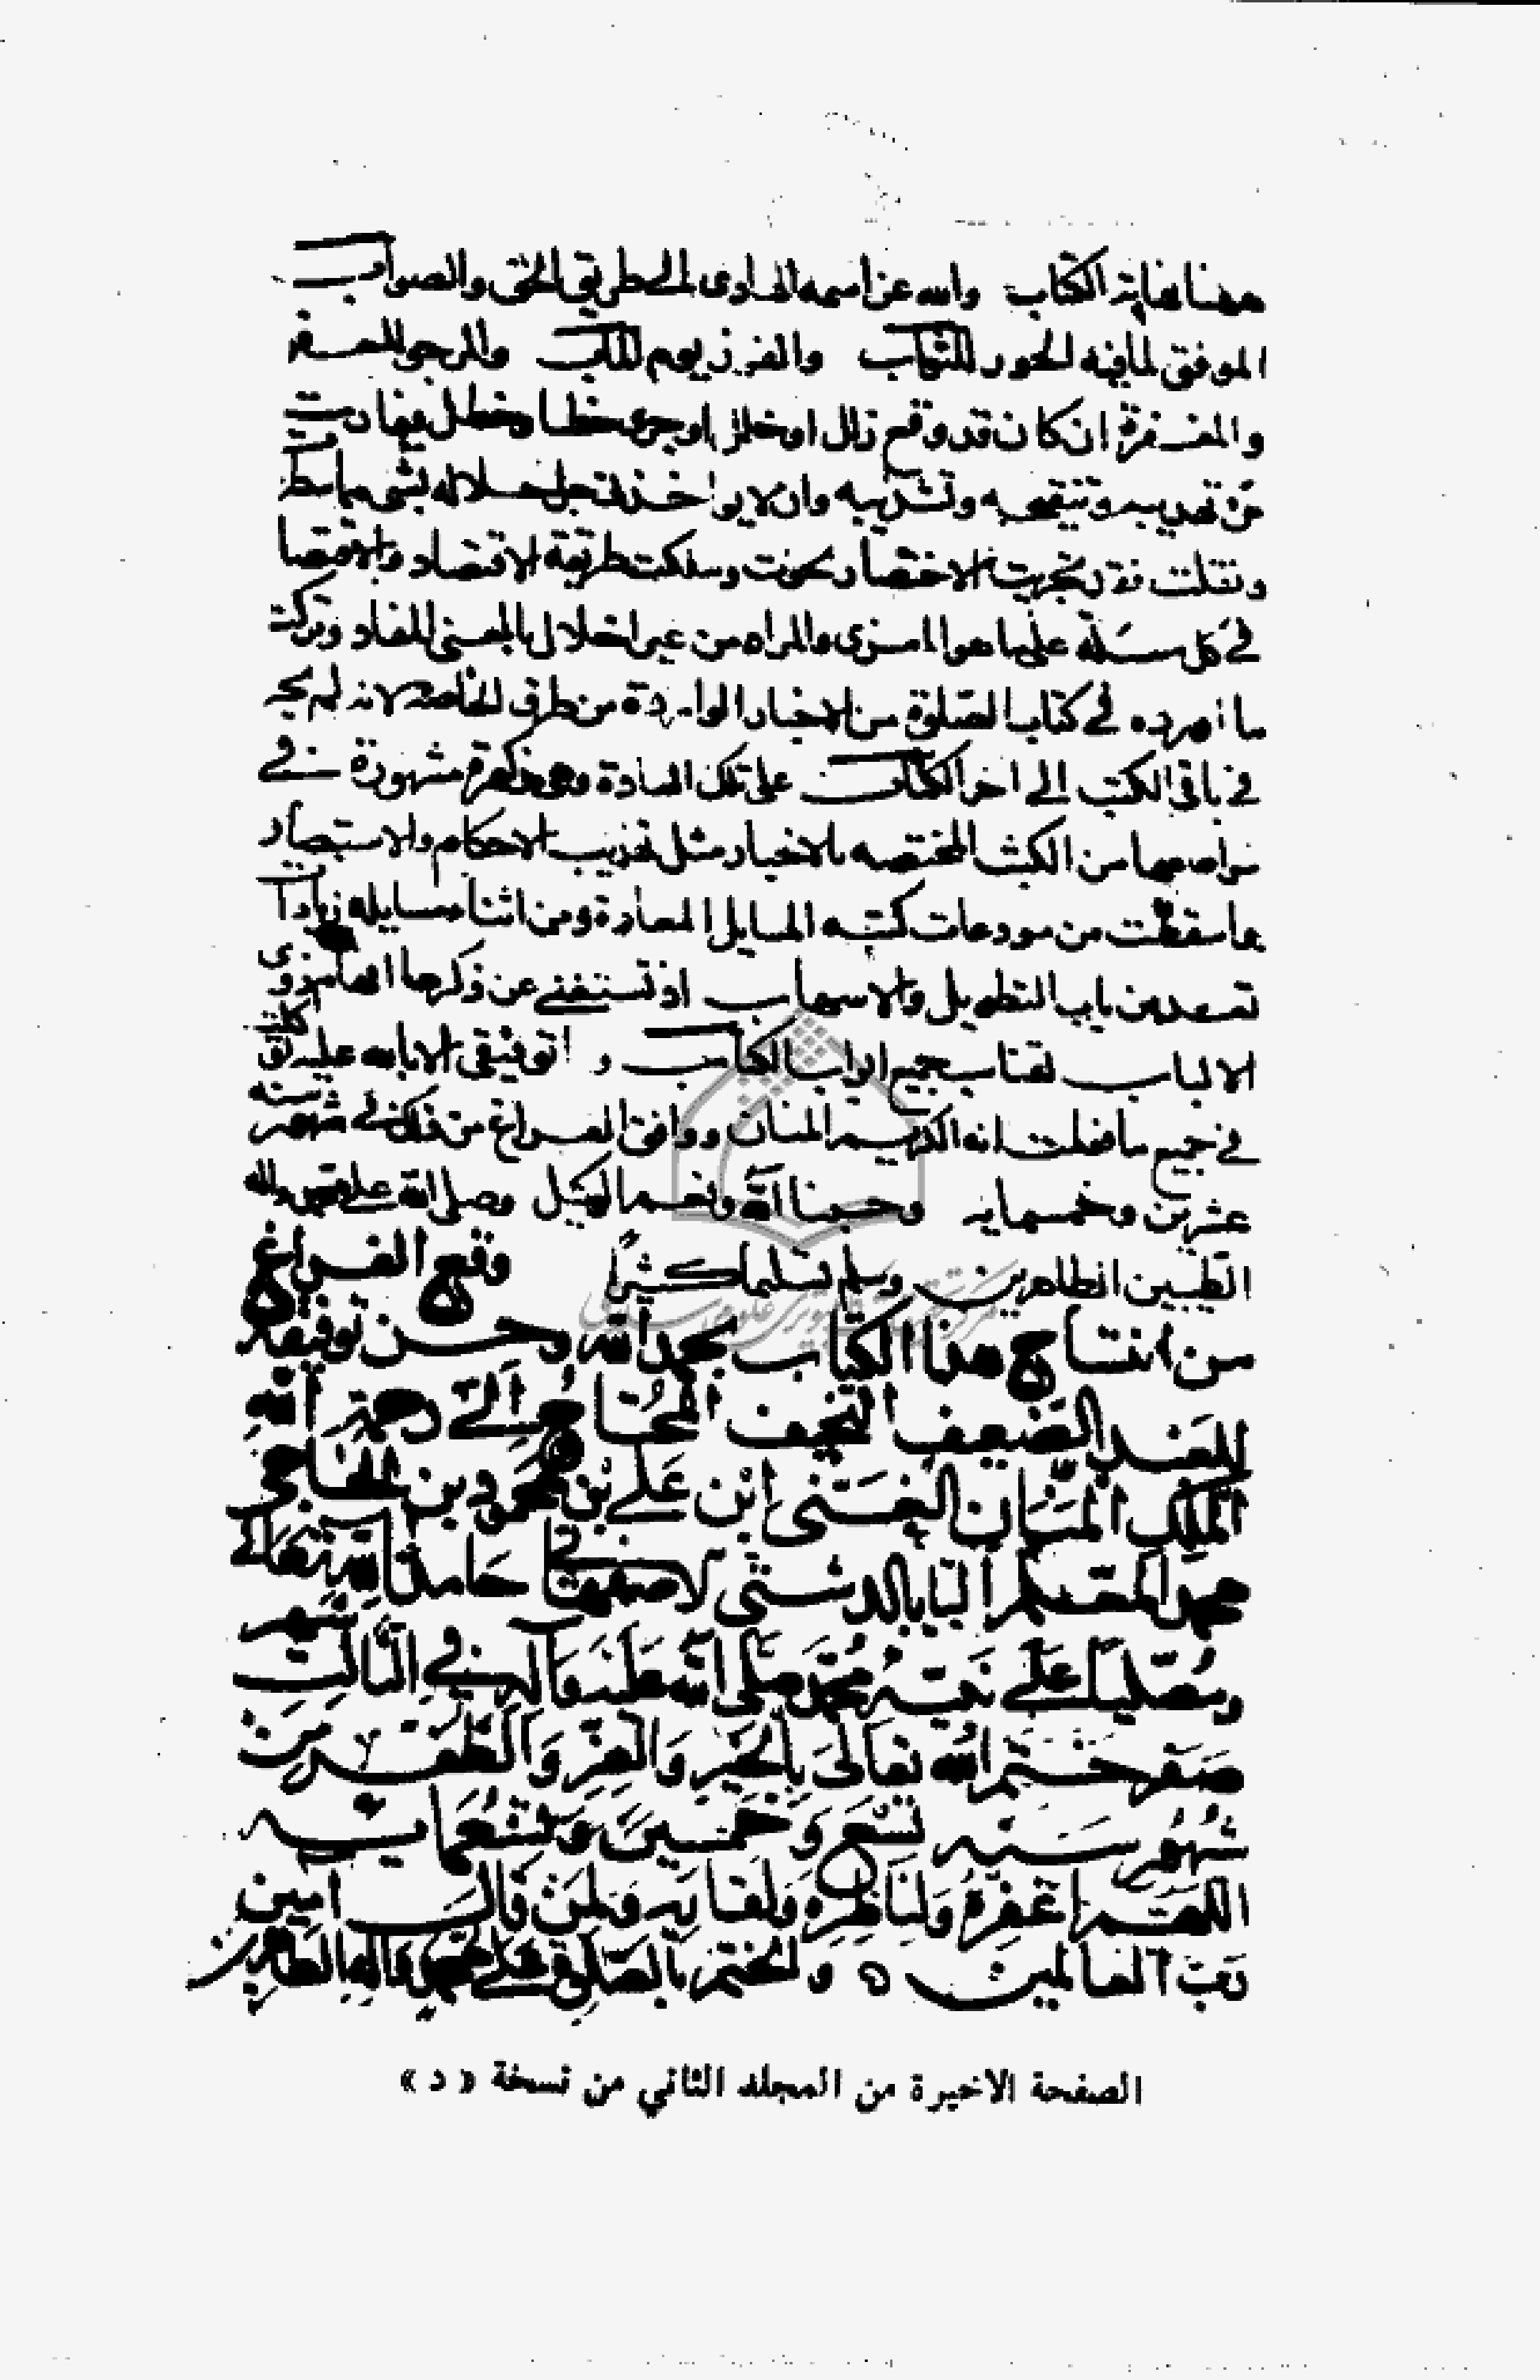 هذا نهاية الكتاب والله عز اسمه الهادى الى طريق الحق والصواب
الموفق لما فيه الحور للثواب والفوز يوم المآب والمرجو للعفو
والمغفرة ان كان قد وقع زلل او خلل او جرى خطا وخطل فيما رمت
من تهذيبه وتنقيحه وترتيبه وان لا يواخذنى جل جلاله بشى مما سطرت
ونقلت فقد تحريت الاختصار وسلكت طريقة الاقتصاد والاقتصار
في كل مسئلة على ما هو المغزى والمراد من غير اخلال بالمعنى المفاد وتركت
ما اورده في كتاب الصلوة من الاخبار الواردة من طرق الخاصة لانه لم يجر
في باقي الكتب الى اخر الكتاب على تلك العادة وهى مذكورة مشهورة في
مواضعها من الكتب المختصة بالاخبار مثل تهذيب الاحكام والاستبصار
واسقطت من مودعات كتبه المسايل المعادة ومن اثناء مسايله زيادات
تعد من باب التطويل والاسهاب اذ تستغنى عن ذكرها افهام ذوى
الالباب لقناب جميع ابواب الكتاب وما توفيقى الا بالله عليه توكلت
في جميع ما فعلت انه الكريم المنان ووافق الفراغ من ذلك في شهر سنة
عشرين وخمسماية وحسبنا الله ونعم الوكيل وصلى الله على محمد واله
الطيبين الطاهرين وسلم تسليما كثيرًا وقع الفراغ
من انتساخ هذا الكتاب بحمد الله وحسن توفيقه
للعبد الضعيف النحيف المحتاج الى رحمة الله
الملك المنان الغنى ابن على بن محمود بن الحاجى
محمد المعلم البابا الدشتى الاصفهانى حامدا لله تعالى
ومصليا على نبيه محمد صلى الله عليه وآله في الثالث شهر
صفر ختم الله تعالى بالخير والعز والظفر من
شهور سنه تسع وخمسين وتسعمايه
اللهم اغفره ولناظره ولقاريه ولمن قال امين
رب العالمين ٥ والختم بالصلوة على محمد واله الطاهرين
الصفحة الاخيرة من المجلد الثاني من نسخة « د »